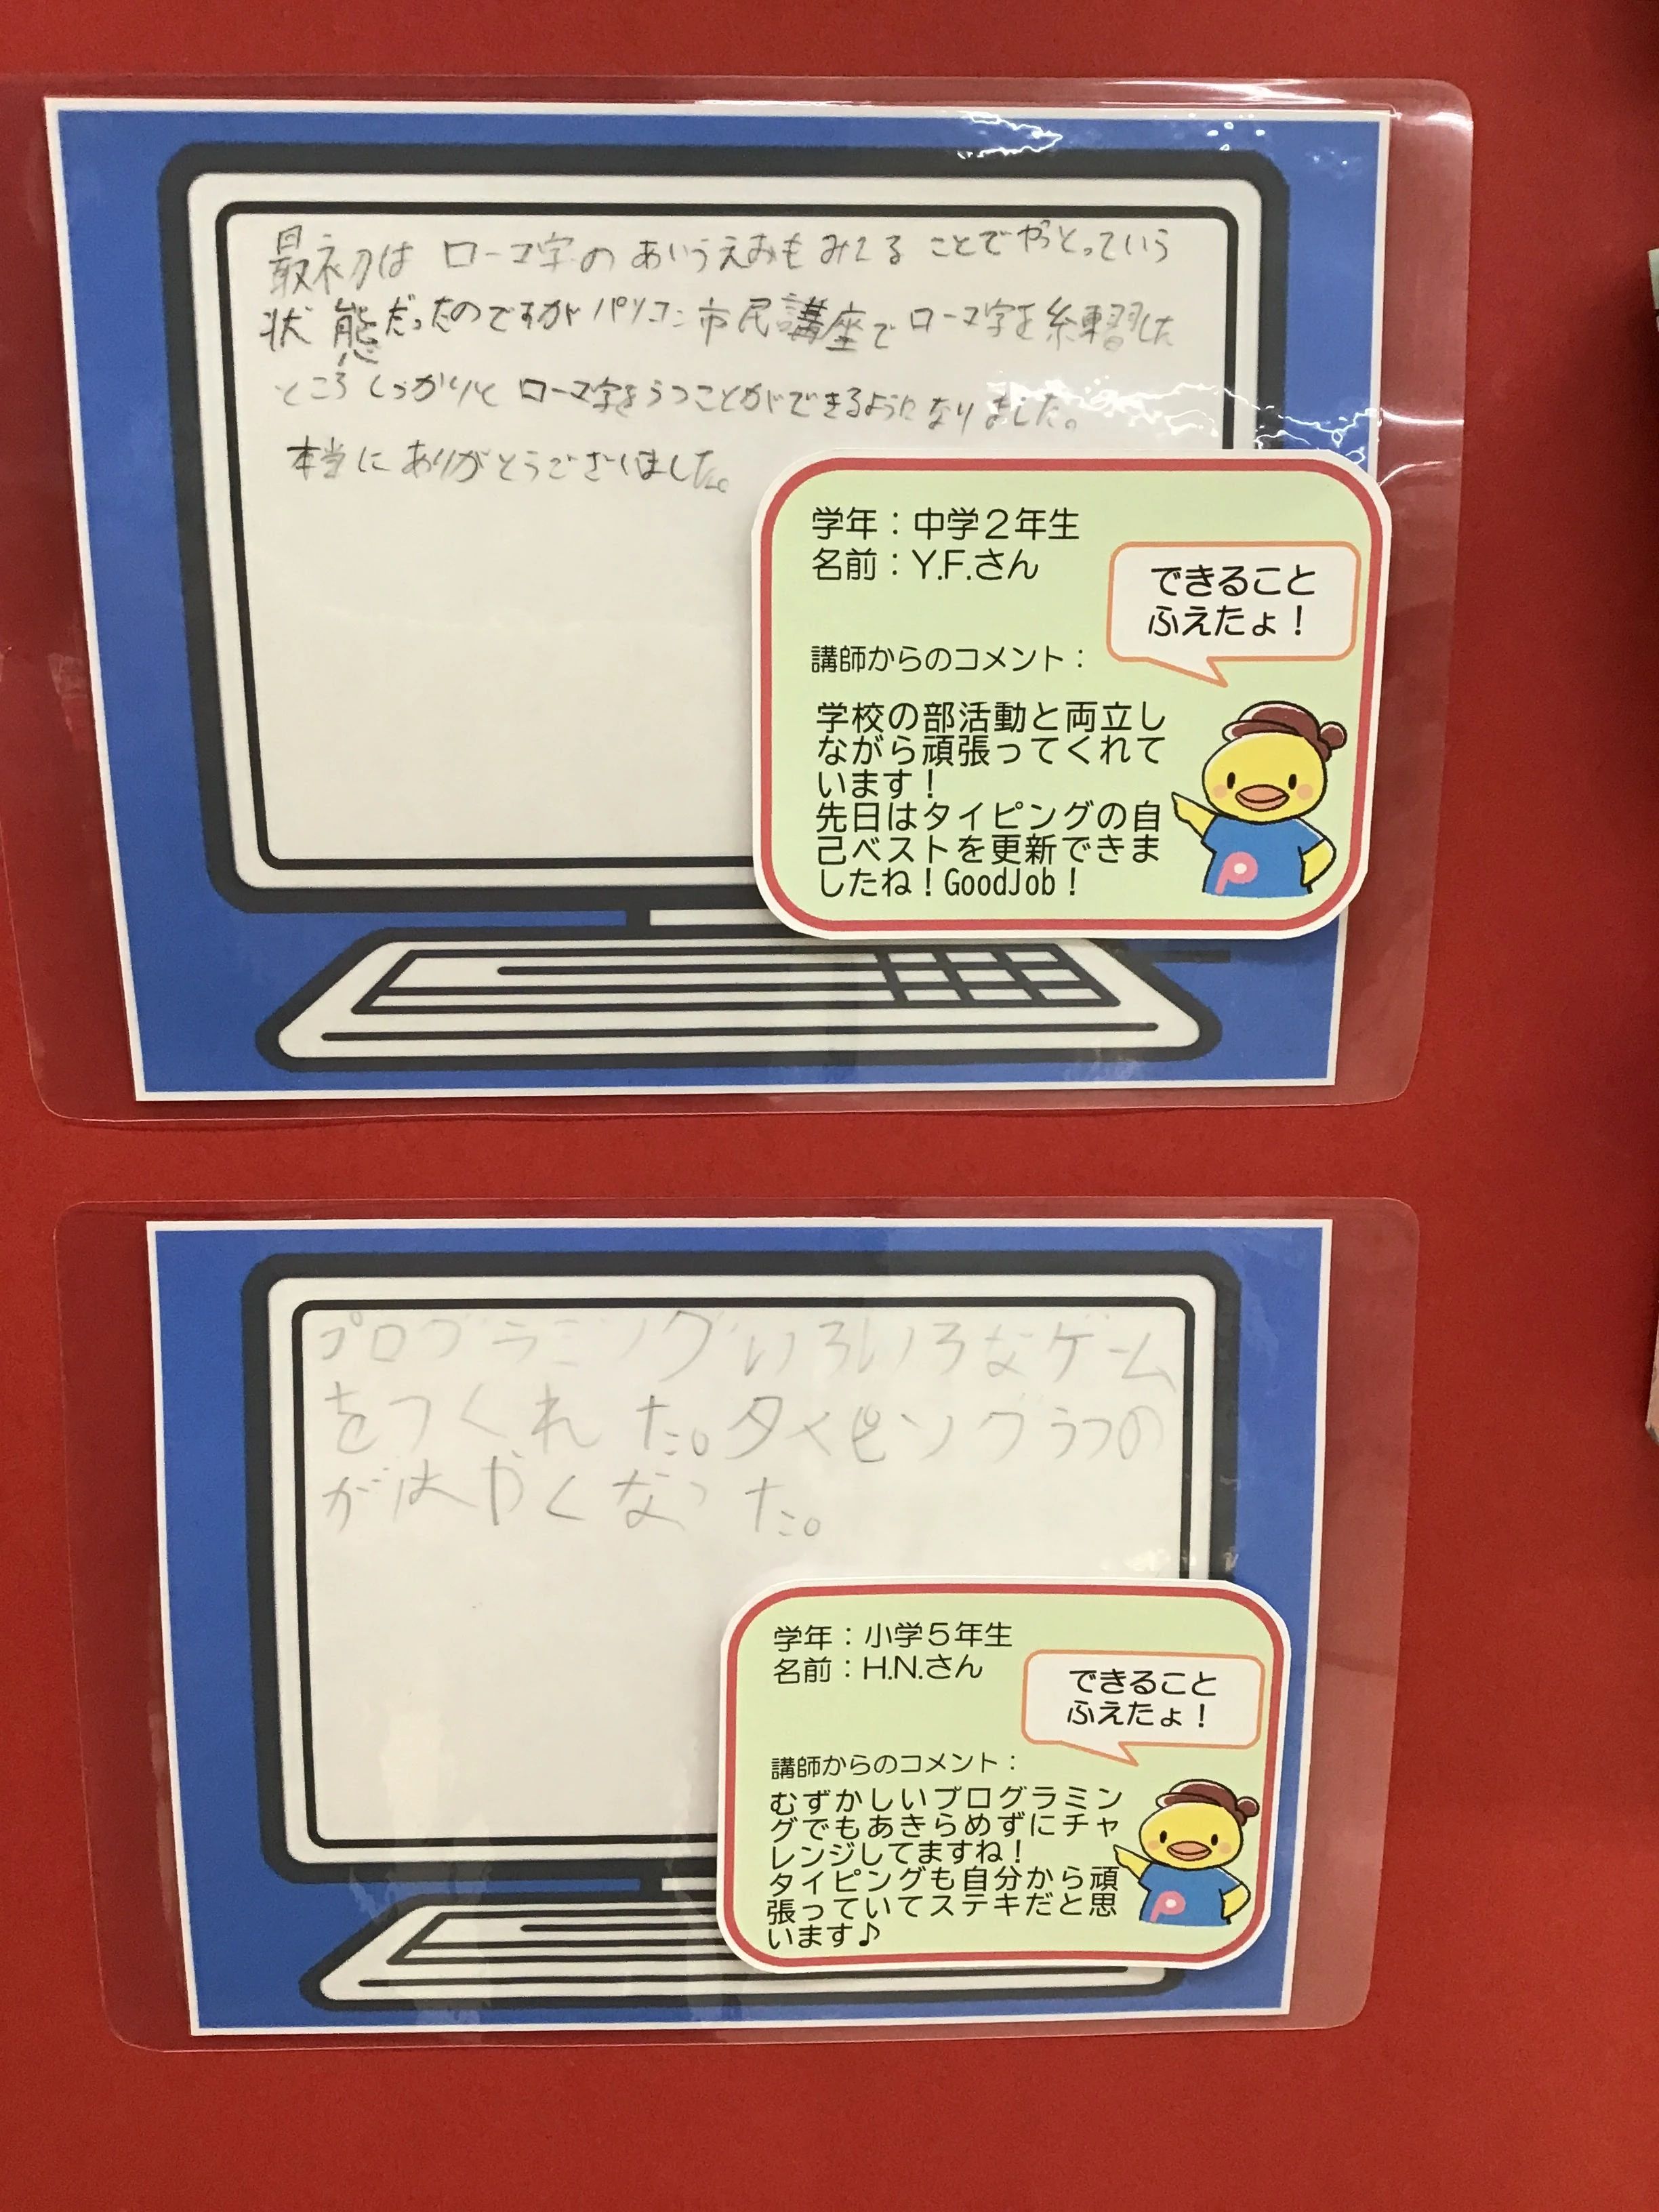 最初は ローマ字の あいうえおも みてる ことで やっとっていう
状態だったのですが パソコン市民講座で ローマ字を練習した
ところ しっかりと ローマ字をうつことができるようになりました。
本当に ありがとうございました。
学年：中学２年生
名前：Y.F.さん
できること
ふえたょ！
講師からのコメント：
学校の部活動と両立し
ながら頑張ってくれて
います！
先日はタイピングの自
己ベストを更新できま
したね！GoodJob！
プログラミングいろいろなゲーム
をつくれた。タイピングうつの
がはやくなった。
学年：小学５年生
名前：H.N.さん
できること
ふえたょ！
講師からのコメント：
むずかしいプログラミン
グでもあきらめずにチャ
レンジしてますね！
タイピングも自分から頑
張っていてステキだと思
います♪